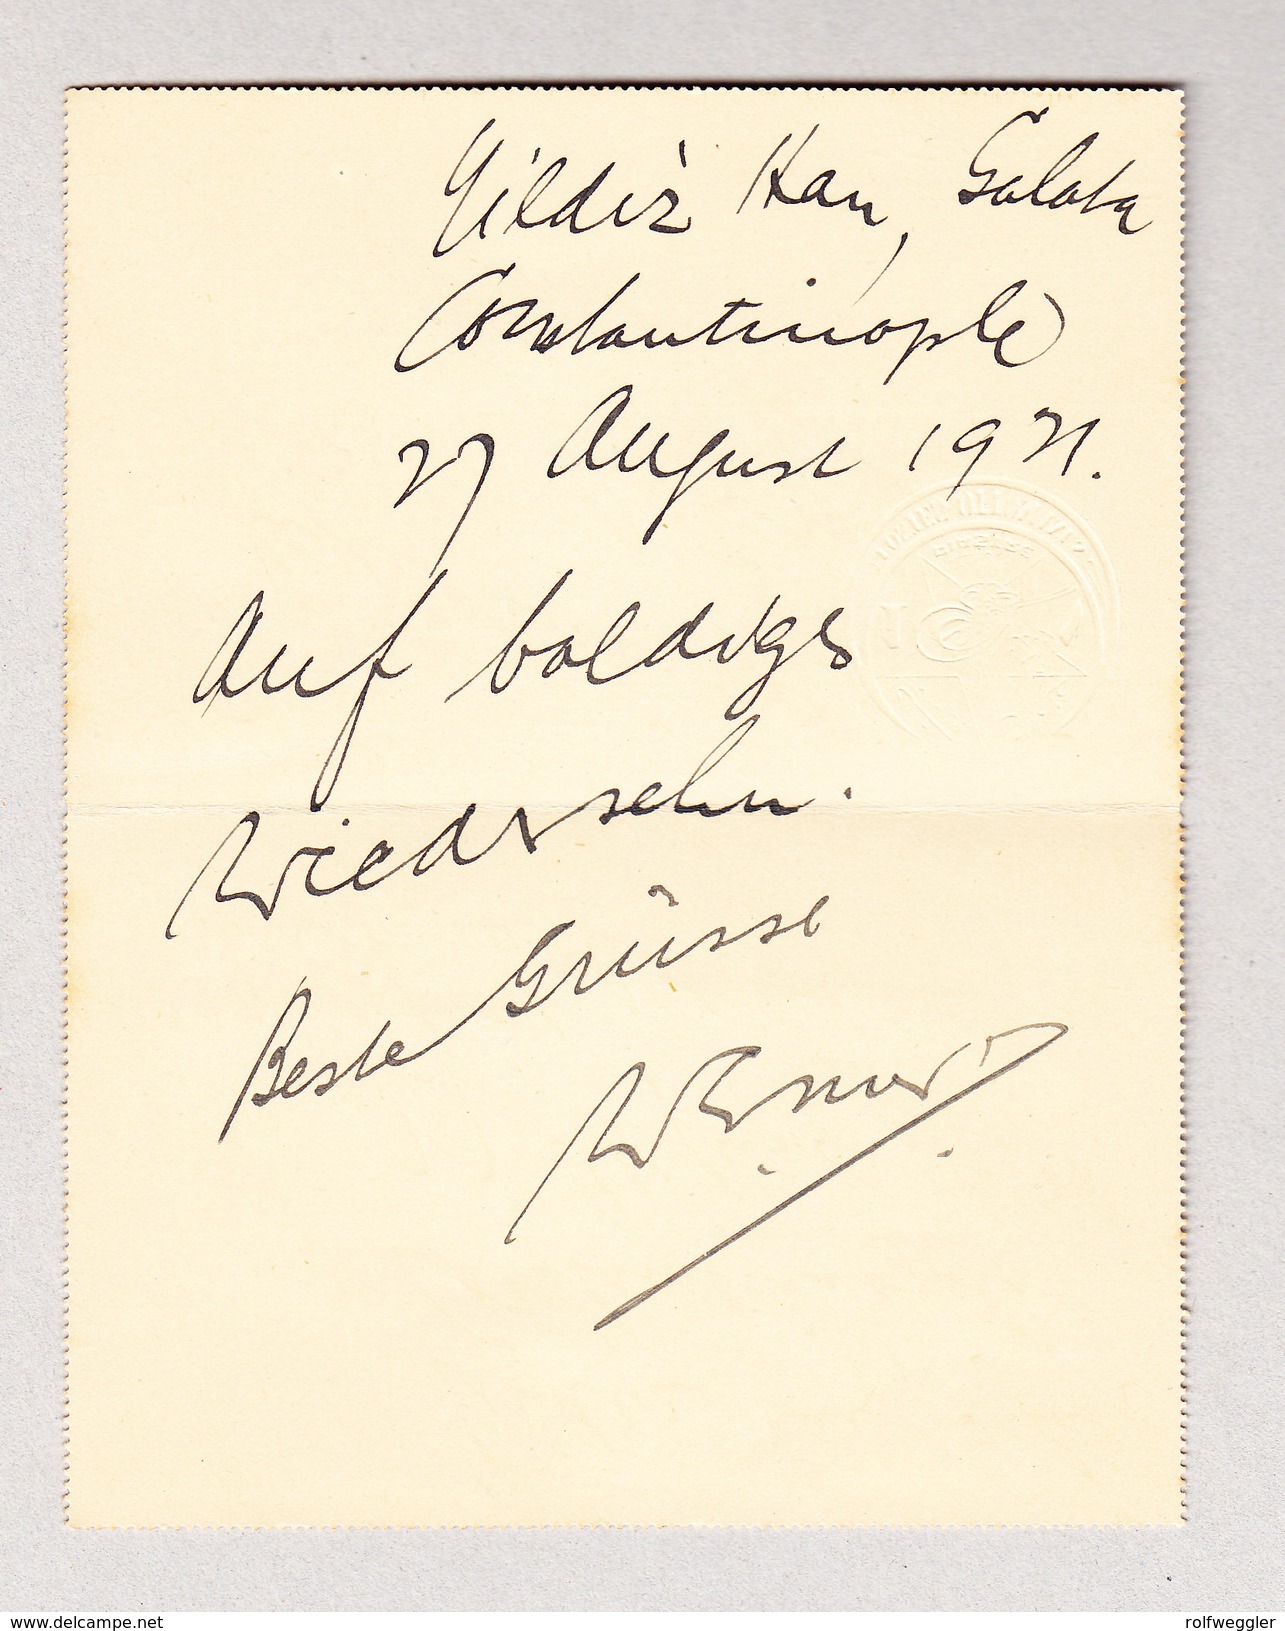 Yildiz Han, Galata
Constantinople
27 August 1921.
Auf baldiges
Wiedersehn.
Beste Grüsse
Werner
© www.delcampe.net
rolfweggler